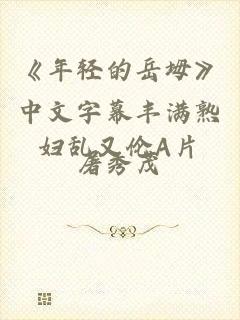 《年轻的岳坶》
中文字幕丰满熟
妇乱又伦A片
屠秀茂